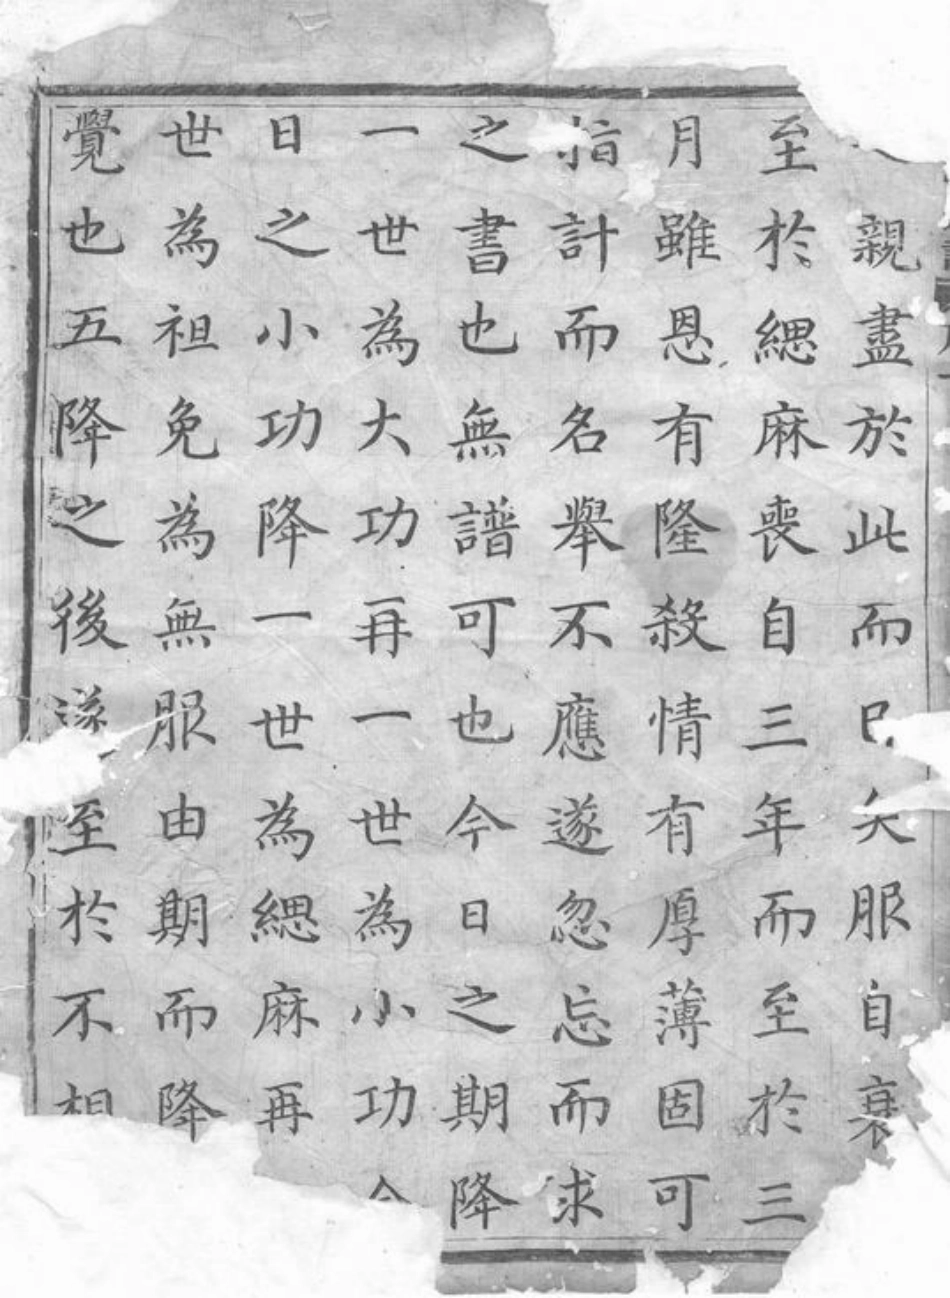 親盡於此而已矣服自衰
至於緦麻喪自三年而至於三
月雖恩有隆殺情有厚薄固可
指計而名舉不應遂忽忘而求
之書也無譜可也今日之期降
一世為大功再一世為小功今
日之小功降一世為緦麻再
世為袒免為無服由期而降
覺也五降之後遂至於不相